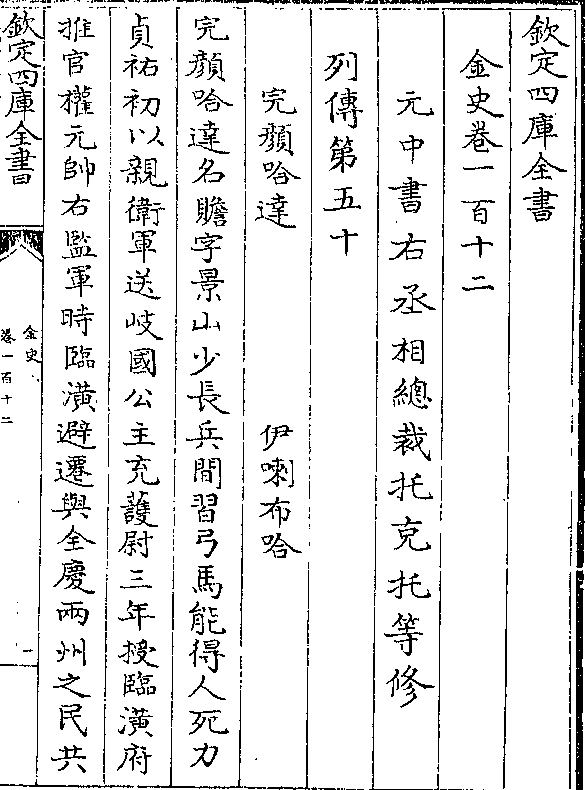 欽定四庫全書
金史卷一百十二
元中書右丞相總裁托克托等修
列傳第五十
完顔哈達　伊喇布哈
完顔哈達名瞻字景山少長兵間習弓馬能得人死力
貞祐初以親衛軍送岐國公主充䕶尉三年授臨潢府
推官權元帥右監軍時臨潢避遷與全慶兩州之民共
欽定四庫全書
金史
卷一百十二
一